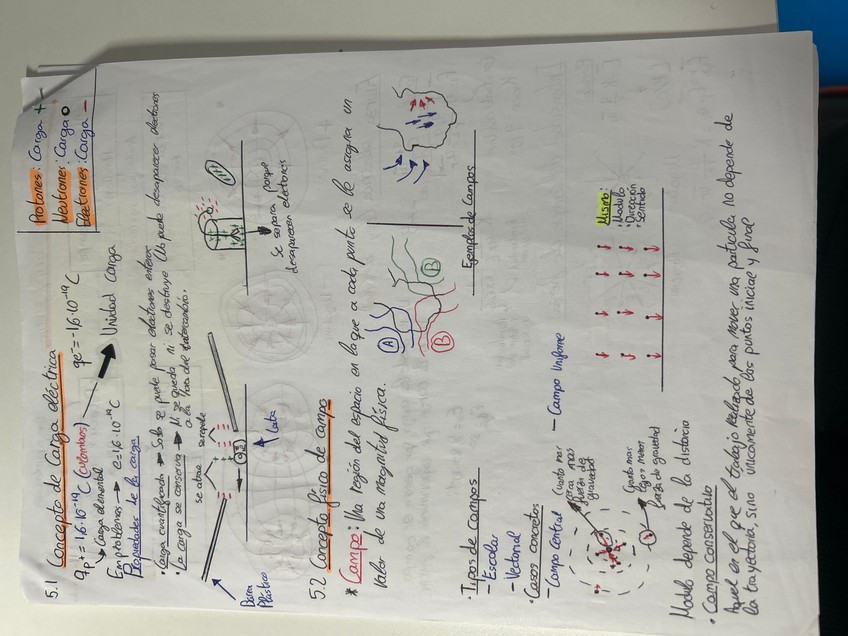 5.1 Concepto de Carga eléctrica
Protones: Carga +
Neutrones: Carga o
Electrones: Carga -
qp+ = 1,6·10⁻¹⁹ C (culombios)
qe⁻ = -1,6·10⁻¹⁹ C
Carga elemental
Unidad Carga
En problemas → e = 1,6·10⁻¹⁹ C
Propiedades de la carga
· Carga cuantificada → Solo se puede pasar electrones enteros
· La carga se conserva → Ni se queda ni se destruye (No puede desaparecer electrones
a la hora del intercambio).
se atrae
se repele
Barra
Plástico
Lata
Se separa porque
desaparecen electrones
5.2 Concepto físico de campo
* Campo: Una región del espacio en la que a cada punto se le asigna un
valor de una magnitud física.
A
B
B
Ejemplos de Campos
· Tipos de campos
- Escalar
- Vectorial
· Casos concretos
- Campo Central
- Campo Uniforme
Cuanto mas
cerca mas
fuerza de
gravedad
Cuanto mas
lejos menos
fuerza de gravedad
Mismo:
· Modulo
· Dirección
· Sentido
Modulo depende de la distacia
· Campo conservativo
Aquel en el que el trabajo realizado para mover una particula no depende de
la trayectoria, sino unicamente de los puntos inicial y final